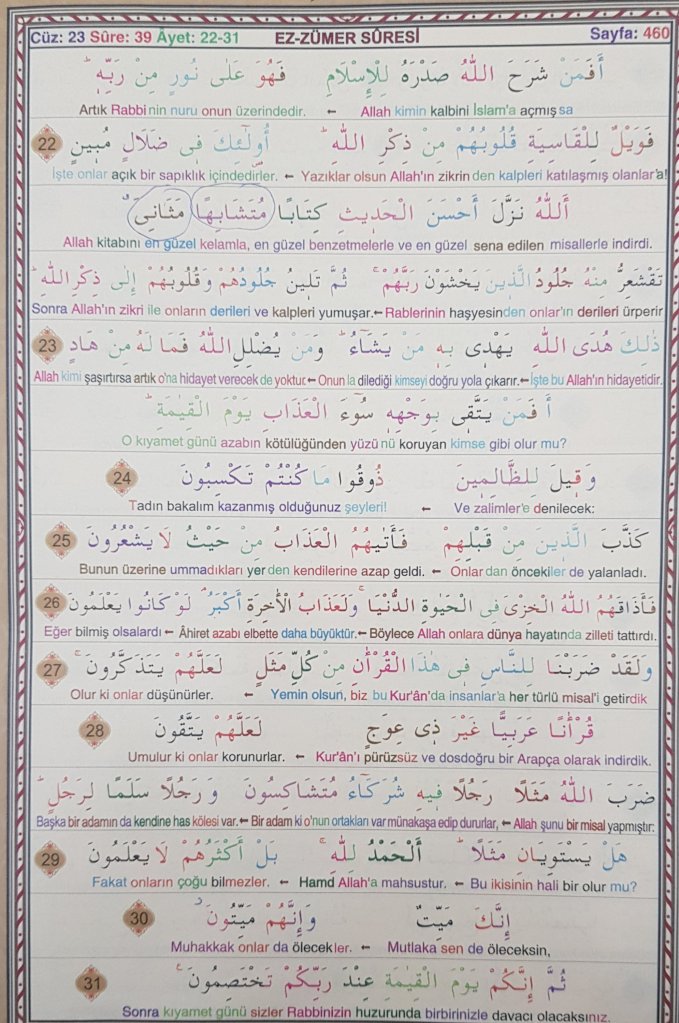 Cüz: 23 Sûre: 39 Âyet: 22-31 EZ-ZÜMER SÛRESİ Sayfa: 460
أَفَمَنْ شَرَحَ اللّٰهُ صَدْرَهُ لِلْاِسْلَامِ فَهُوَ عَلٰى نُورٍ مِنْ رَبِّهٖؕ
Artık Rabbinin nuru onun üzerindedir. ← Allah kimin kalbini İslam'a açmışsa
فَوَيْلٌ لِلْقَاسِيَةِ قُلُوبُهُمْ مِنْ ذِكْرِ اللّٰهِؕ اُولٰٓئِكَ فٖى ضَلَالٍ مُبٖينٍ 22
İşte onlar açık bir sapıklık içindedirler. ← Yazıklar olsun Allah'ın zikrinden kalpleri katılaşmış olanlar'a!
اَللّٰهُ نَزَّلَ اَحْسَنَ الْحَدٖيثِ كِتَابًا مُتَشَابِهًا مَثَانِىَ
Allah kitabını en güzel kelamla, en güzel benzetmelerle ve en güzel sena edilen misallerle indirdi.
تَقْشَعِرُّ مِنْهُ جُلُودُ الَّذٖينَ يَخْشَوْنَ رَبَّهُمْۚ ثُمَّ تَلٖينُ جُلُودُهُمْ وَقُلُوبُهُمْ اِلٰى ذِكْرِ اللّٰهِؕ
Sonra Allah'ın zikri ile onların derileri ve kalpleri yumuşar.← Rablerinin haşyesinden onlar'ın derileri ürperir
ذٰلِكَ هُدَى اللّٰهِ يَهْدٖى بِهٖ مَنْ يَشَٓاءُؕ وَمَنْ يُضْلِلِ اللّٰهُ فَمَا لَهُ مِنْ هَادٍ 23
Allah kimi şaşırtırsa artık o'na hidayet verecek de yoktur.← Onunla dilediği kimseyi doğru yola çıkarır.← İşte bu Allah'ın hidayetidir.
اَفَمَنْ يَتَّقٖى بِوَجْهِهٖ سُٓوءَ الْعَذَابِ يَوْمَ الْقِيٰمَةِؕ
O kıyamet günü azabın kötülüğünden yüzünü koruyan kimse gibi olur mu?
وَقٖيلَ لِلظَّالِمٖينَ ذُوقُوا مَا كُنْتُمْ تَكْسِبُونَ 24
Tadın bakalım kazanmış olduğunuz şeyleri! ← Ve zalimler'e denilecek:
كَذَّبَ الَّذٖينَ مِنْ قَبْلِهِمْ فَاَتٰيهُمُ الْعَذَابُ مِنْ حَيْثُ لَا يَشْعُرُونَ 25
Bunun üzerine ummadıkları yerden kendilerine azap geldi. ← Onlardan öncekiler de yalanladı.
فَاَذَاقَهُمُ اللّٰهُ الْخِزْىَ فِى الْحَيٰوةِ الدُّنْيَاۚ وَلَعَذَابُ الْاٰخِرَةِ اَكْبَرُۘ لَوْ كَانُوا يَعْلَمُونَ 26
Eğer bilmiş olsalardı ← Âhiret azabı elbette daha büyüktür.← Böylece Allah onlara dünya hayatında zilleti tattırdı.
وَلَقَدْ ضَرَبْنَا لِلنَّاسِ فٖى هٰذَا الْقُرْاٰنِ مِنْ كُلِّ مَثَلٍ لَعَلَّهُمْ يَتَذَكَّرُونَۚ 27
Olur ki onlar düşünürler. ← Yemin olsun, biz bu Kur'ân'da insanlar'a her türlü misal'i getirdik
قُرْاٰنًا عَرَبِيًّا غَيْرَ ذٖى عِوَجٍ لَعَلَّهُمْ يَتَّقُونَ 28
Umulur ki onlar korunurlar. ← Kur'ân'ı pürüzsüz ve dosdoğru bir Arapça olarak indirdik.
ضَرَبَ اللّٰهُ مَثَلًا رَجُلًا فٖيهِ شُرَكَٓاءُ مُتَشَاكِسُونَ وَرَجُلًا سَلَمًا لِرَجُلٍؕ
Başka bir adamın da kendine has kölesi var.← Bir adam ki o'nun ortakları var münakaşa edip dururlar, ← Allah şunu bir misal yapmıştır:
هَلْ يَسْتَوِيَانِ مَثَلًاؕ اَلْحَمْدُ لِلّٰهِۚ بَلْ اَكْثَرُهُمْ لَا يَعْلَمُونَ 29
Fakat onların çoğu bilmezler. ← Hamd Allah'a mahsustur. ← Bu ikisinin hali bir olur mu?
اِنَّكَ مَيِّتٌ وَاِنَّهُمْ مَيِّتُونَ 30
Muhakkak onlar da ölecekler. ← Mutlaka sen de öleceksin,
ثُمَّ اِنَّكُمْ يَوْمَ الْقِيٰمَةِ عِنْدَ رَبِّكُمْ تَخْتَصِمُونَ 31
Sonra kıyamet günü sizler Rabbinizin huzurunda birbirinizle davacı olacaksınız.